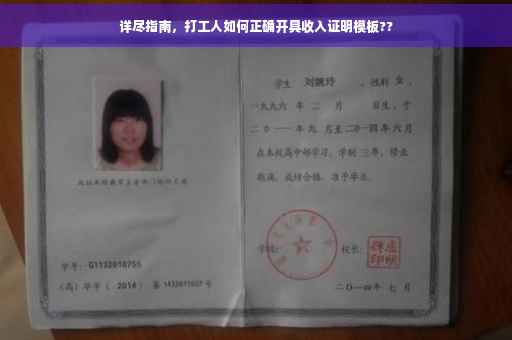 详尽指南，打工人如何正确开具收入证明模板??
学生 刘婉玲 ，性别 女 ，
一九九六 年 二 月 日生，于
二〇一一 年 九 月至 二〇一四 年 六 月
在本校高中部学习，学制 三 年，修业
期满，成绩合格，准予毕业。
学号：G1132010755
学校：
校长：
(高) 毕字 ( 2014 ) 第 1432011027 号
二〇一四年 七 月